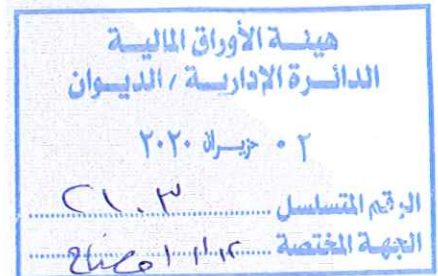 هيئة الأوراق المالية
الدائرة الإدارية / الديوان
٠٢ حزيران ٢٠٢٠
الرقم المتسلسل ٢١٠٣
الجهة المختصة الإفصاح